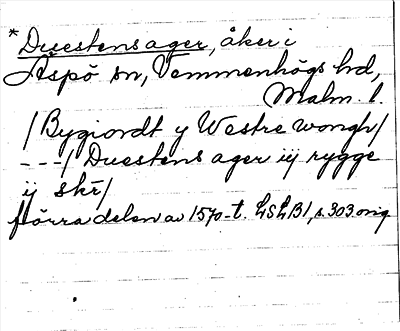 *Duestensager, åker i
Aspö sn, Vemmenhögs hd,
Malm. l.
/Bygiordt y Westre wongh/
---/ Duestens ager iij rygge
ij skr/
förra delen av 1570-t. LSLB1, s. 303 orig